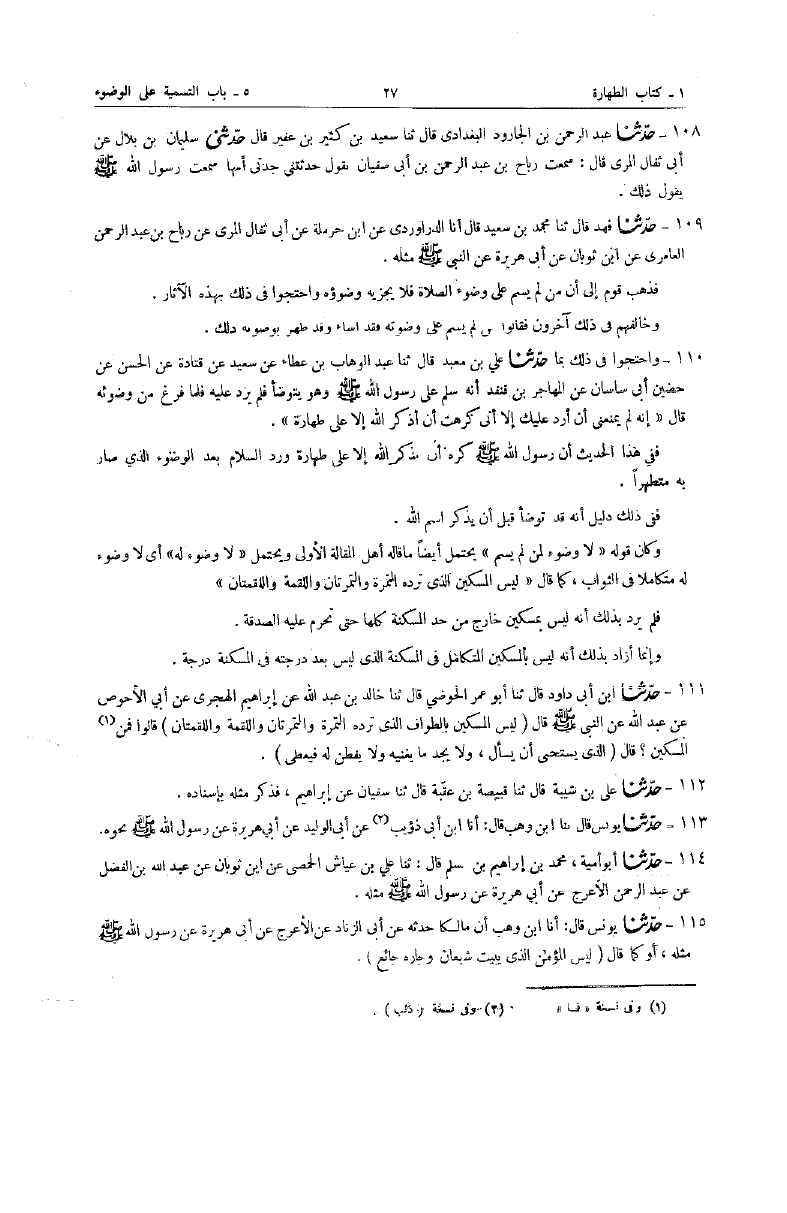 ١ ـ كتاب الطهارة ٢٧ ٥ ـ باب التسمية على الوضوء
١٠٨ ـ حدّثنا عبد الرحمن بن الجارود البغدادى قال ثنا سعيد بن كثير بن عفير قال حدّثنى سليمان بن بلال عن
أبى ثفال المرى قال : سمعت رباح بن عبد الرحمن بن أبى سفيان يقول حدثتنى جدتى أنها سمعت رسول الله ﷺ
يقول ذلك .
١٠٩ ـ حدّثنا فهد قال ثنا محمد بن سعيد قال أنا الدراوردى عن ابن حرملة عن أبى ثفال المرى عن رباح بن عبد الرحمن
العامرى عن ابن ثوبان عن أبى هريرة عن النبى ﷺ مثله .
فذهب قوم إلى أن من لم يسم على وضوء الصلاة فلا يجزيه وضوؤه واحتجوا فى ذلك بهذه الآثار .
وخالفهم فى ذلك آخرون فقالوا لم يسم على وضوئه فقد أساء وقد طهر بوضوئه ذلك .
١١٠ ـ واحتجوا فى ذلك بما حدّثنا علي بن معبد قال ثنا عبد الوهاب بن عطاء عن سعيد عن قتادة عن الحسن عن
حضين أبى ساسان عن المهاجر بن قنفد أنه سلم على رسول الله ﷺ وهو يتوضأ فلم يرد عليه فلما فرغ من وضوئه
قال « إنه لم يمنعنى أن أرد عليك إلا أنى كرهت أن أذكر الله إلا على طهارة » .
ففى هذا الحديث أن رسول الله ﷺ كره أن يذكر الله إلا على طهارة ورد السلام بعد الوضوء الذي صار
به متطهراً .
ففى ذلك دليل أنه قد توضأ قبل أن يذكر اسم الله .
وكان قوله « لا وضوء لمن لم يسم » يحتمل أيضاً ماقاله أهل المقالة الأولى ويحتمل « لا وضوء له» أى لا وضوء
له متكاملا فى الثواب ، كما قال « ليس المسكين الذى ترده التمرة والتمرتان واللقمة واللقمتان »
فلم يرد بذلك أنه ليس بمسكين خارج من حد المسكنة كلها حتى تحرم عليه الصدقة .
وإنما أراد بذلك أنه ليس بالمسكين المتكامل فى المسكنة الذى ليس بعد درجته فى المسكنة درجة .
١١١ ـ حدّثنا ابن أبى داود قال ثنا أبو عمر الحوضي قال ثنا خالد بن عبد الله عن إبراهيم الهجرى عن أبي الأحوص
عن عبد الله عن النبى ﷺ قال ( ليس المسكين بالطواف الذى ترده التمرة والتمرتان واللقمة واللقمتان ) قالوا فمن(١)
المسكين ؟ قال ( الذى يستحى أن يسأل ، ولا يجد ما يغنيه ولا يفطن له فيعطى ) .
١١٢ ـ حدّثنا على بن شيبة قال ثنا قبيصة بن عقبة قال ثنا سفيان عن إبراهيم ، فذكر مثله بإسناده .
١١٣ ـ حدّثنا يونس قال ثنا ابن وهب قال : أنا ابن أبى ذؤيب(٢) عن أبى الوليد عن أبي هريرة عن رسول الله ﷺ نحوه.
١١٤ ـ حدّثنا أبو أمية ، محمد بن إبراهيم بن سلم قال : ثنا علي بن عياش الحمصى عن ابن ثوبان عن عبد الله بن الفضل
عن عبد الرحمن الأعرج عن أبي هريرة عن رسول الله ﷺ مثله .
١١٥ ـ حدّثنا يونس قال: أنا ابن وهب أن مالكا حدثه عن أبى الزناد عن الأعرج عن أبى هريرة عن رسول الله ﷺ
مثله ، أو كما قال ( ليس المؤمن الذى يبيت شبعان وجاره جائع ) .
(١) وفى نسخة « فما » (٢) وفى نسخة ( ذئب ) .